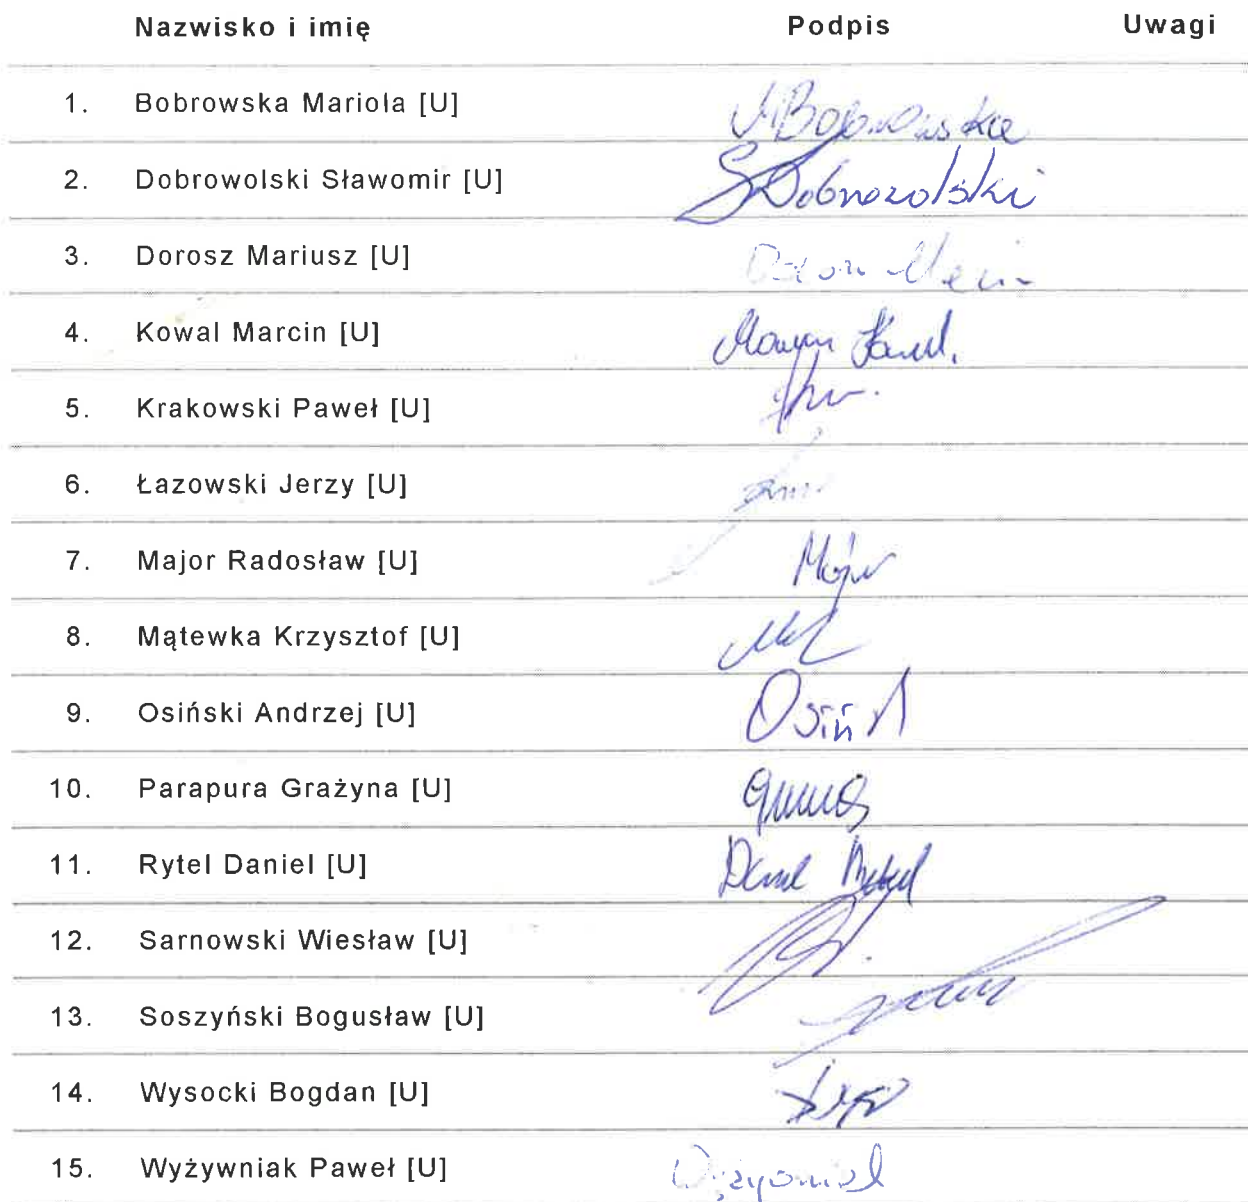 Nazwisko i imię Podpis Uwagi
1. Bobrowska Mariola [U] MBobrowska
2. Dobrowolski Sławomir [U] SDobrowolski
3. Dorosz Mariusz [U]
4. Kowal Marcin [U]
5. Krakowski Paweł [U]
6. Łazowski Jerzy [U]
7. Major Radosław [U] Major
8. Mątewka Krzysztof [U]
9. Osiński Andrzej [U] Osiń A
10. Parapura Grażyna [U]
11. Rytel Daniel [U] Daniel Rytel
12. Sarnowski Wiesław [U]
13. Soszyński Bogusław [U]
14. Wysocki Bogdan [U]
15. Wyżywniak Paweł [U]